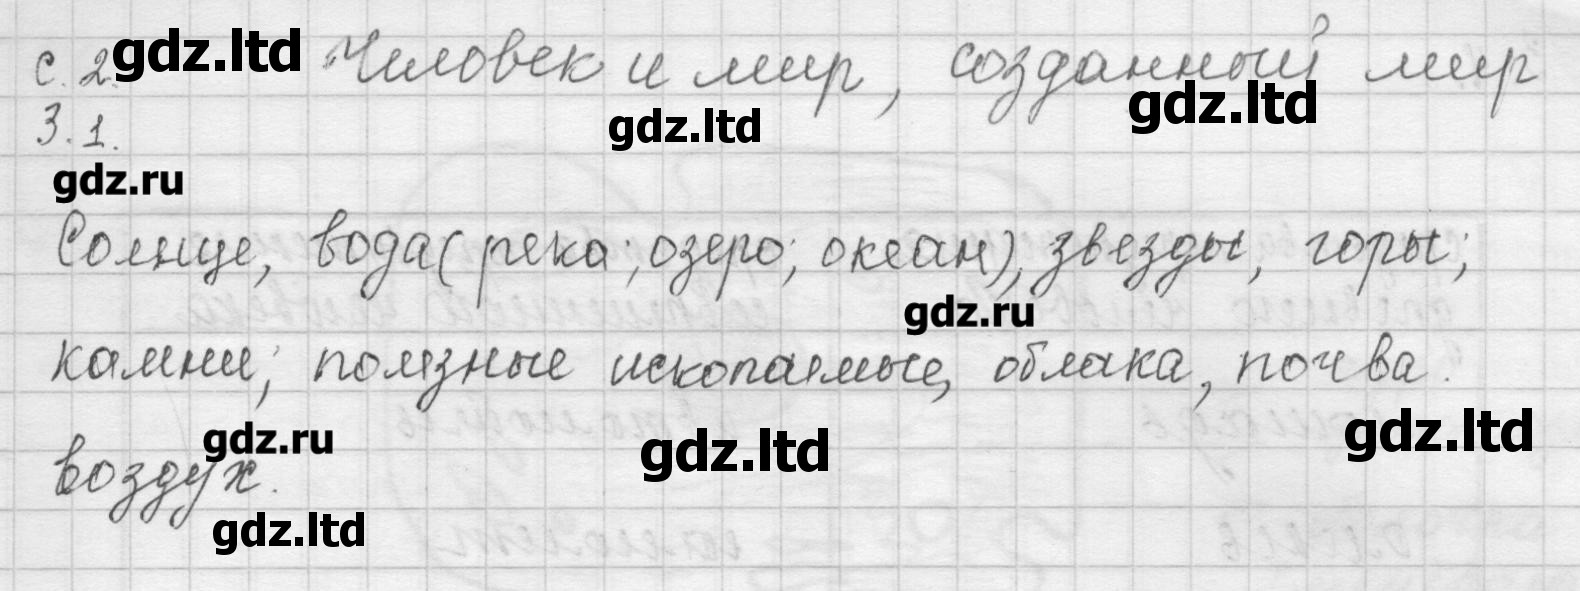 с. 2. gdz.ltd Человек и мир, созданный мир
З.1. gdz.ltd gdz.ltd
gdz.ru
Солнце, вода (река; озеро; океан), звезды, горы;
gdz.ru
камни; полезные ископаемые, облака, почва.
gdz.ru gdz.ltd gdz.ltd
воздух.
gdz.ltd